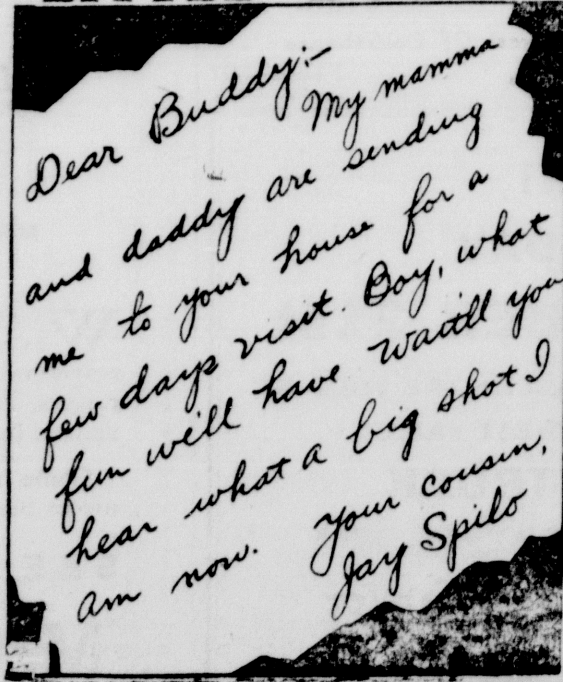 Dear Buddy:—
My mamma
and daddy are sending
me to your house for a
few days visit. Boy, what
fun we'll have Wait'll you
hear what a big shot I
am now. Your cousin,
Jay Spilo